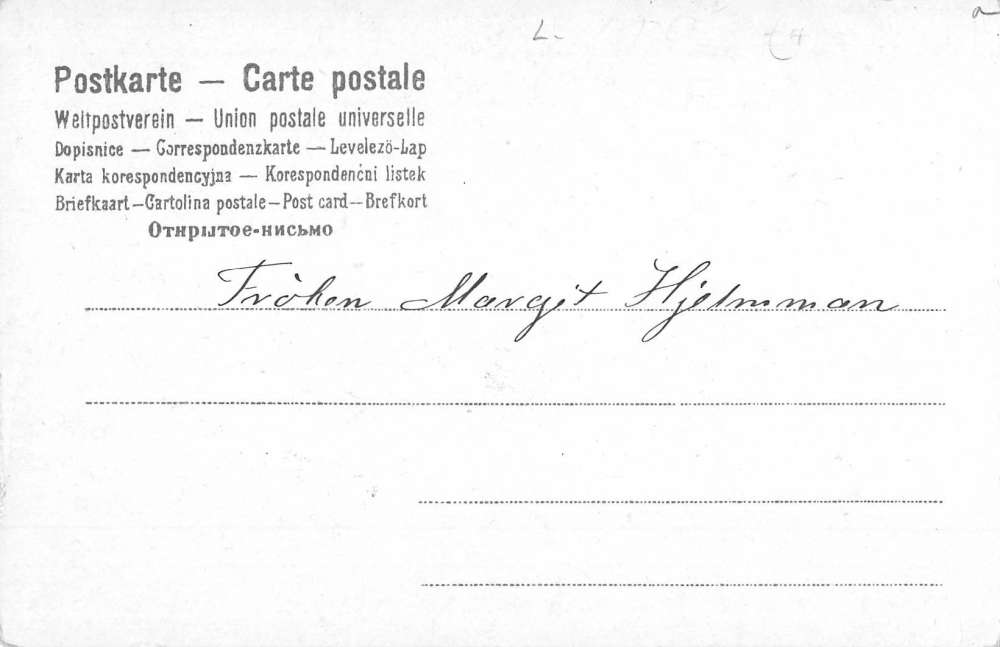 L.
Postkarte — Carte postale
Weltpostverein — Union postale universelle
Dopisnice — Correspondenzkarte — Levelezö-Lap
Karta korespondencyjna — Korespondenční listek
Briefkaart—Cartolina postale—Post card—Brefkort
Открытое-письмо
Fröken Margit Hjelmman